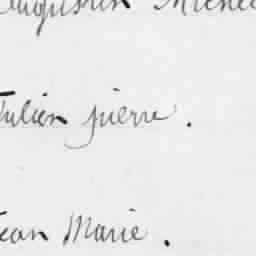 Augustin Michel
Julien pierre.
Jean Marie.